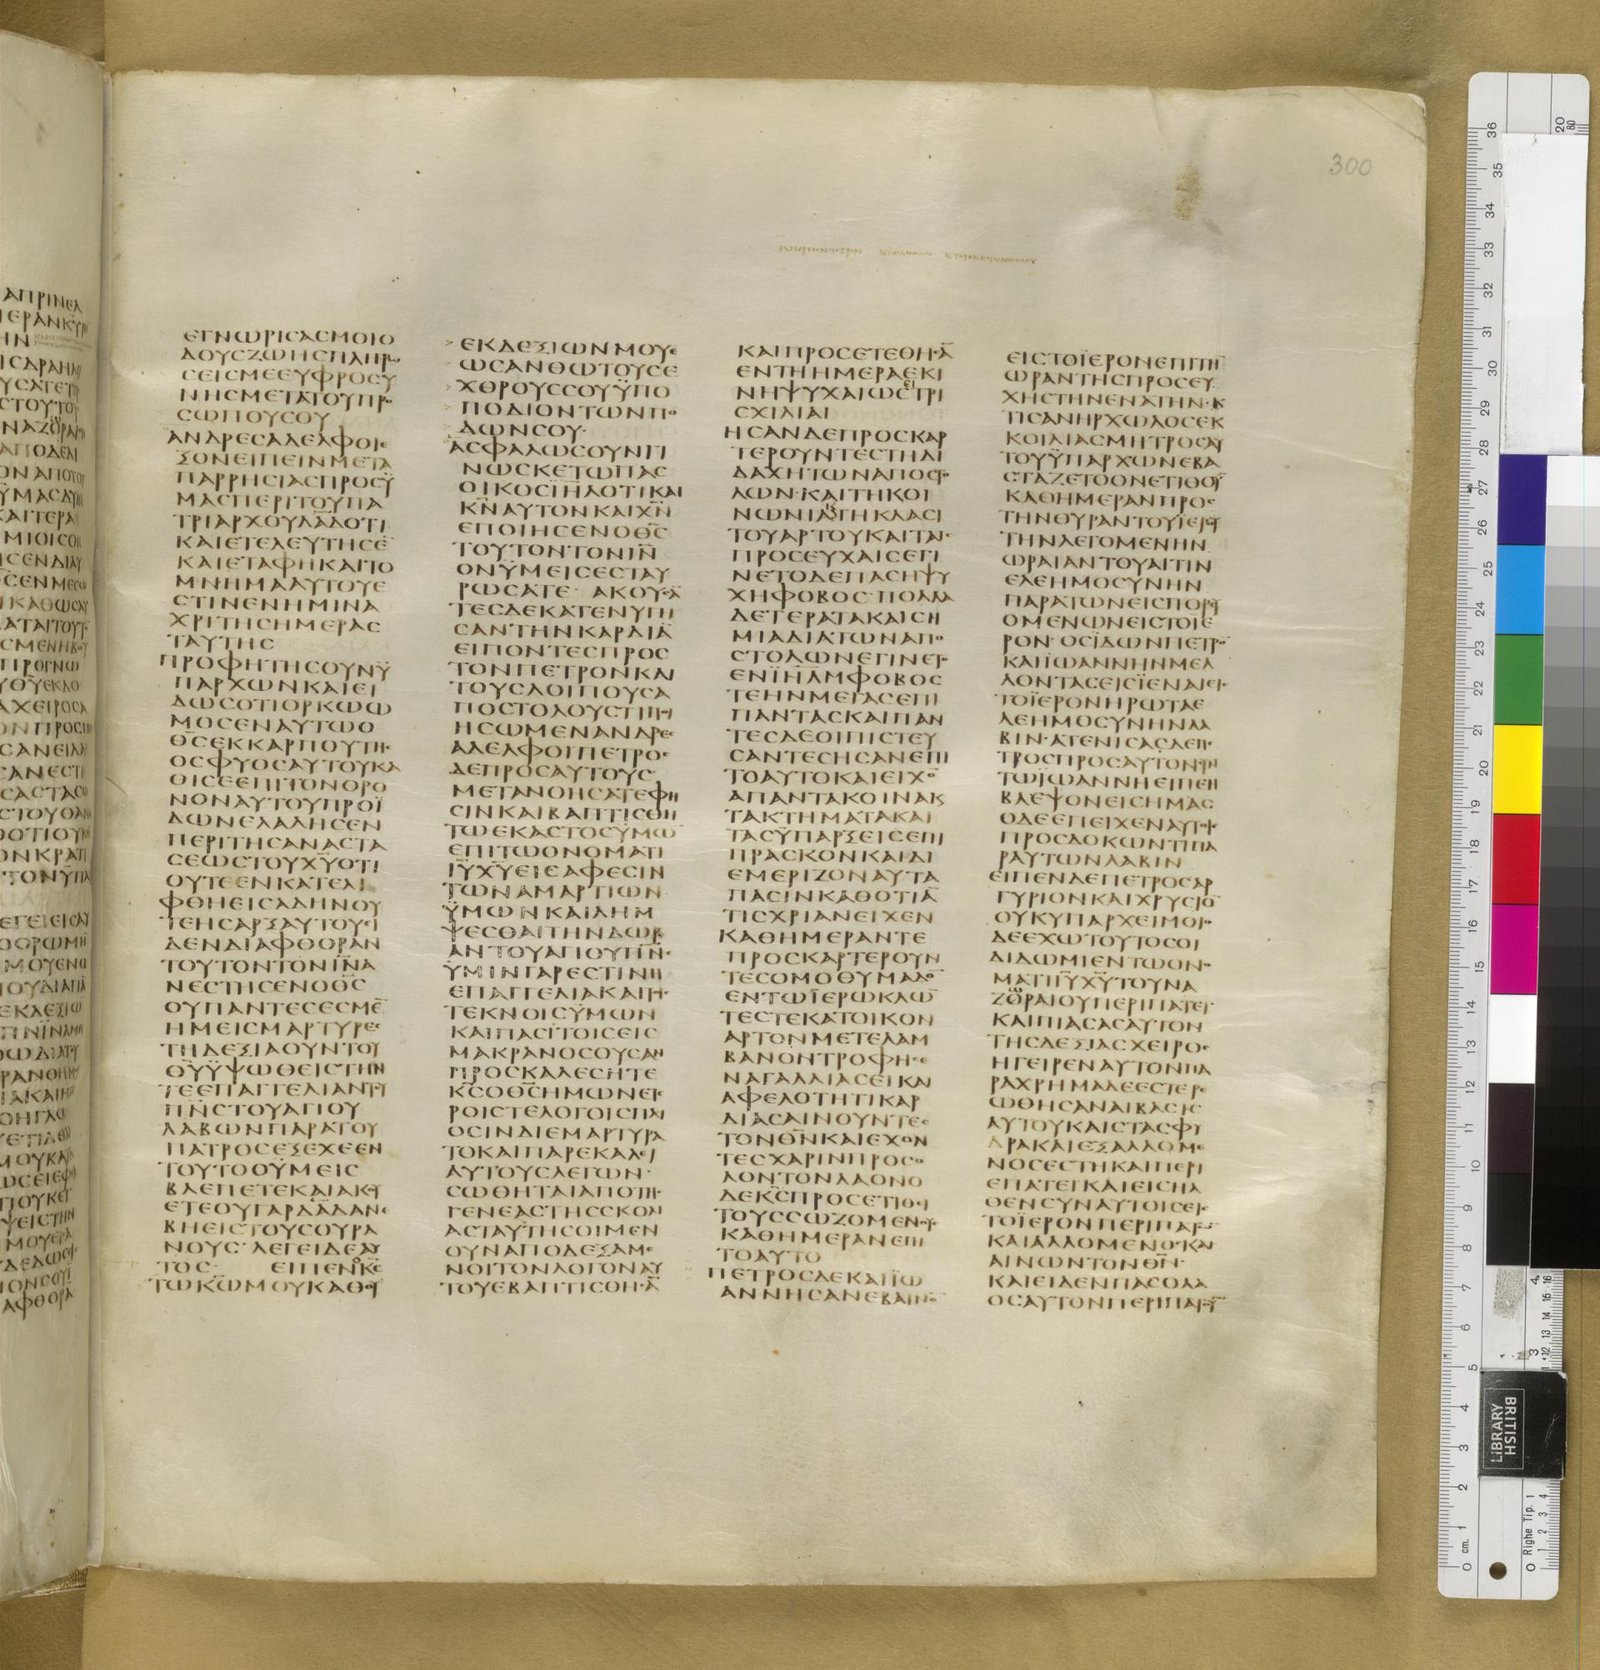 300
ΕΓΝΩΡΙϹΑϹΜΟΙΟ
ΔΟΥϹΖΩΗϹΠΛΗΡΩ
ϹΕΙϹΜΕΕΥΦΡΟϹΥ
ΝΗϹΜΕΤΑΤΟΥΠΡΟ
ϹΩΠΟΥϹΟΥ
ΑΝΔΡΕϹΑΔΕΛΦΟΙΕ
ΞΟΝΕΙΠΕΙΝΜΕΤΑ
ΠΑΡΡΗϹΙΑϹΠΡΟϹΫ
ΜΑϹΠΕΡΙΤΟΥΠΑ
ΤΡΙΑΡΧΟΥΔΑ̅Δ̅ΟΤΙ
ΚΑΙΕΤΕΛΕΥΤΗϹΕ̅
ΚΑΙΕΤΑΦΗΚΑΙΤΟ
ΜΝΗΜΑΑΥΤΟΥΕ
ϹΤΙΝΕΝΗΜΙΝΑ
ΧΡΙΤΗϹΗΜΕΡΑϹ
ΤΑΥΤΗϹ
ΠΡΟΦΗΤΗϹΟΥΝΫ
ΠΑΡΧΩΝΚΑΙΕΙ
ΔΩϹΟΤΙΟΡΚΩΩ
ΜΟϹΕΝΑΥΤΩΟ
Θ̅Ϲ̅ΕΚΚΑΡΠΟΥΤΗϹ
ΟϹΦΥΟϹΑΥΤΟΥΚΑ
ΘΙϹΕΕΠΙΤΟΝΘΡΟ
ΝΟΝΑΥΤΟΥΠΡΟΪ
ΔΩΝΕΛΑΛΗϹΕΝ
ΠΕΡΙΤΗϹΑΝΑϹΤΑ
ϹΕΩϹΤΟΥΧ̅Υ̅ΟΤΙ
ΟΥΤΕΕΝΚΑΤΕΛΙ
ΦΘΗΕΙϹΑΔΗΝΟΥ
ΤΕΗϹΑΡΞΑΥΤΟΥΕΙ
ΔΕΝΔΙΑΦΘΟΡΑΝ
ΤΟΥΤΟΝΤΟΝΙ̅Ν̅Α
ΝΕϹΤΗϹΕΝΟΘ̅Ϲ̅
ΟΥΠΑΝΤΕϹΕϹΜΕ̅
ΗΜΕΙϹΜΑΡΤΥΡΕϹ
ΤΗΔΕΞΙΑΟΥΝΤΟΥ
Θ̅Υ̅ΫΨΩΘΕΙϹΤΗΝ
ΤΕΕΠΑΓΓΕΛΙΑΝΤΟΥ
Π̅Ν̅Ϲ̅ΤΟΥΑΓΙΟΥ
ΛΑΒΩΝΠΑΡΑΤΟΥ
ΠΑΤΡΟϹΕΞΕΧΕΕΝ
ΤΟΥΤΟΟΫΜΕΙϹ
ΒΛΕΠΕΤΕΚΑΙΑΚΟΥ
ΕΤΕΟΥΓΑΡΔΑ̅Δ̅ΑΝΕ
ΒΗΕΙϹΤΟΥϹΟΥΡΑ
ΝΟΥϹ·ΛΕΓΕΙΔΕΑΥ
ΤΟϹ· ΕΙΠΕΝΟΚ̅Ϲ̅
ΤΩΚ̅Ω̅ΜΟΥΚΑΘΟΥ
ΕΚΔΕΞΙΩΝΜΟΥΕ
ΩϹΑΝΘΩΤΟΥϹΕ
ΧΘΡΟΥϹϹΟΥΫΠΟ
ΠΟΔΙΟΝΤΩΝΠΟ
ΔΩΝϹΟΥ·
ΑϹΦΑΛΩϹΟΥΝΓΙ
ΝΩϹΚΕΤΩΠΑϹ
ΟΙΚΟϹΙ̅Η̅Λ̅ΟΤΙΚΑΙ
Κ̅Ν̅ΑΥΤΟΝΚΑΙΧ̅Ν̅
ΕΠΟΙΗϹΕΝΟΘ̅Ϲ̅
ΤΟΥΤΟΝΤΟΝΙ̅Ν̅
ΟΝΫΜΕΙϹΕϹΤΑΥ
ΡΩϹΑΤΕ· ΑΚΟΥϹΑ̅
ΤΕϹΔΕΚΑΤΕΝΥΓΗ
ϹΑΝΤΗΝΚΑΡΔΙΑ̅
ΕΙΠΟΝΤΕϹΠΡΟϹ
ΤΟΝΠΕΤΡΟΝΚΑΙ
ΤΟΥϹΛΟΙΠΟΥϹΑ
ΠΟϹΤΟΛΟΥϹΤΙΠΟΙ
ΗϹΩΜΕΝΑΝΔΡΕϹ
ΑΔΕΛΦΟΙΠΕΤΡΟϹ
ΔΕΠΡΟϹΑΥΤΟΥϹ
ΜΕΤΑΝΟΗϹΑΤΕΦΗ
ϹΙΝΚΑΙΒΑΠΤΙϹΘΗ
ΤΩΕΚΑϹΤΟϹΫΜΩ̅
ΕΠΙΤΩΟΝΟΜΑΤΙ
Ι̅Υ̅Χ̅Υ̅ΕΙϹΑΦΕϹΙΝ
ΤΩΝΑΜΑΡΤΙΩΝ
ΫΜΩΝΚΑΙΛΗΜ
ΨΕϹΘΑΙΤΗΝΔΩΡΕ
ΑΝΤΟΥΑΓΙΟΥΠ̅Ν̅Ϲ̅
ΫΜΙΝΓΑΡΕϹΤΙΝΗ
ΕΠΑΓΓΕΛΙΑΚΑΙΤΟΙϹ
ΤΕΚΝΟΙϹΫΜΩΝ
ΚΑΙΠΑϹΙΤΟΙϹΕΙϹ
ΜΑΚΡΑΝΟϹΟΥϹΑΝ
ΠΡΟϹΚΑΛΕϹΗΤΕ
Κ̅Ϲ̅ΟΘ̅Ϲ̅ΗΜΩΝΕΤΕ
ΡΟΙϹΤΕΛΟΓΟΙϹΠΛΙ
ΟϹΙΝΔΙΕΜΑΡΤΥΡΑ
ΤΟΚΑΙΠΑΡΕΚΑΛΕΙ
ΑΥΤΟΥϹΛΕΓΩΝ·
ϹΩΘΗΤΑΙΑΠΟΤΗϹ
ΓΕΝΕΑϹΤΗϹϹΚΟΛΙ
ΑϹΤΑΥΤΗϹΟΙΜΕΝ
ΟΥΝΑΠΟΔΕΞΑΜΕ
ΝΟΙΤΟΝΛΟΓΟΝΑΥ
ΤΟΥΕΒΑΠΤΙϹΘΗϹΑ̅
ΚΑΙΠΡΟϹΕΤΕΘΗϹΑ̅
ΕΝΤΗΗΜΕΡΑΕΚΙ
ΝΗΨΥΧΑΙΩϹΕΙΤΡΙ
ϹΧΙΛΙΑΙ
ΗϹΑΝΔΕΠΡΟϹΚΑΡ
ΤΕΡΟΥΝΤΕϹΤΗΔΙ
ΔΑΧΗΤΩΝΑΠΟϹΤΟ
ΛΩΝ·ΚΑΙΤΗΚΟΙ
ΝΩΝΙΑΤΗΚΛΑϹΙ
ΤΟΥΑΡΤΟΥΚΑΙΤΑΙϹ
ΠΡΟϹΕΥΧΑΙϹΕΓΙ
ΝΕΤΟΔΕΠΑϹΗΨΥ
ΧΗΦΟΒΟϹ·ΠΟΛΛΑ
ΔΕΤΕΡΑΤΑΚΑΙϹΗ
ΜΙΑΔΙΑΤΩΝΑΠΟ
ϹΤΟΛΩΝΕΓΙΝΕΤΟ
ΕΝΙ̅Η̅Λ̅Μ̅ΦΟΒΟϹ
ΤΕΗΝΜΕΓΑϹΕΠΙ
ΠΑΝΤΑϹΚΑΙΠΑΝ
ΤΕϹΔΕΟΙΠΙϹΤΕΥ
ϹΑΝΤΕϹΗϹΑΝΕΠΙ
ΤΟΑΥΤΟΚΑΙΕΙΧΟ̅
ΑΠΑΝΤΑΚΟΙΝΑΚΑΙ
ΤΑΚΤΗΜΑΤΑΚΑΙ
ΤΑϹΫΠΑΡΞΕΙϹΕΠΙ
ΠΡΑϹΚΟΝΚΑΙΔΙ
ΕΜΕΡΙΖΟΝΑΥΤΑ
ΠΑϹΙΝΚΑΘΟΤΙΑ̅
ΤΙϹΧΡΙΑΝΕΙΧΕΝ
ΚΑΘΗΜΕΡΑΝΤΕ
ΠΡΟϹΚΑΡΤΕΡΟΥΝ
ΤΕϹΟΜΟΘΥΜΑΔΟ̅
ΕΝΤΩΪΕΡΩΚΛΩ̅
ΤΕϹΤΕΚΑΤΟΙΚΟΝ
ΑΡΤΟΝΜΕΤΕΛΑΜ
ΒΑΝΟΝΤΡΟΦΗϹΕ
ΝΑΓΑΛΛΙΑϹΕΙΚΑΙ
ΑΦΕΛΟΤΗΤΙΚΑΡ
ΔΙΑϹΑΙΝΟΥΝΤΕϹ
ΤΟΝΘ̅Ν̅ΚΑΙΕΧΟΝ
ΤΕϹΧΑΡΙΝΠΡΟϹΟ
ΛΟΝΤΟΝΛΑΟΝΟ
ΔΕΚ̅Ϲ̅ΠΡΟϹΕΤΙΘΕΙ
ΤΟΥϹϹΩΖΟΜΕΝΟΥϹ
ΚΑΘΗΜΕΡΑΝΕΠΙ
ΤΟΑΥΤΟ
ΠΕΤΡΟϹΔΕΚΑΙΪΩ
ΑΝΝΗϹΑΝΕΒΑΙΝΟ̅
ΕΙϹΤΟΪΕΡΟΝΕΠΙΤΗ̅
ΩΡΑΝΤΗϹΠΡΟϹΕΥ
ΧΗϹΤΗΝΕΝΑΤΗΝ·Κ
ΤΙϹΑΝΗΡΧΩΛΟϹΕΚ
ΚΟΙΛΙΑϹΜΗΤΡΟϹΑΥ
ΤΟΥΫΠΑΡΧΩΝΕΒΑ
ϹΤΑΖΕΤΟΟΝΕΤΙΘΟΥ
ΚΑΘΗΜΕΡΑΝΠΡΟϹ
ΤΗΝΘΥΡΑΝΤΟΥΪΕΡΟΥ
ΤΗΝΛΕΓΟΜΕΝΗΝ
ΩΡΑΙΑΝΤΟΥΑΙΤΙΝ
ΕΛΕΗΜΟϹΥΝΗΝ
ΠΑΡΑΤΩΝΕΙϹΠΟΡΕΥ
ΟΜΕΝΩΝΕΙϹΤΟΙΕ
ΡΟΝ·ΟϹΪΔΩΝΠΕΤΡΟ̅
ΚΑΙΪΩΑΝΝΗΝΜΕΛ
ΛΟΝΤΑϹΕΙϹΪΕΝΑΙΕΙϹ
ΤΟΪΕΡΟΝΗΡΩΤΑΕ
ΛΕΗΜΟϹΥΝΗΝΛΑ
ΒΙΝ·ΑΤΕΝΙϹΑϹΔΕΠΕ
ΤΡΟϹΠΡΟϹΑΥΤΟΝϹΥΝ
ΤΩΪΩΑΝΝΗΕΙΠΕΝ
ΒΛΕΨΟΝΕΙϹΗΜΑϹ
ΟΔΕΕΠΕΙΧΕΝΑΥΤΟΙϹ
ΠΡΟϹΔΟΚΩΝΤΙΠΑ
ΡΑΥΤΩΝΛΑΒΙΝ
ΕΙΠΕΝΔΕΠΕΤΡΟϹΑΡ
ΓΥΡΙΟΝΚΑΙΧΡΥϹΙΟ̅
ΟΥΚΥΠΑΡΧΕΙΜΟΙΟ
ΔΕΕΧΩΤΟΥΤΟϹΟΙ
ΔΙΔΩΜΙΕΝΤΩΟΝΟ
ΜΑΤΙΙ̅Υ̅Χ̅Υ̅ΤΟΥΝΑ
ΖΩΡΑΙΟΥΠΕΡΙΠΑΤΕΙ·
ΚΑΙΠΙΑϹΑϹΑΥΤΟΝ
ΤΗϹΔΕΞΙΑϹΧΕΙΡΟϹ
ΗΓΕΙΡΕΝΑΥΤΟΝΠΑ
ΡΑΧΡΗΜΑΔΕΕϹΤΕΡΕ
ΩΘΗϹΑΝΑΙΒΑϹΙϹ
ΑΥΤΟΥΚΑΙϹΤΑϹΦΥ
ΔΡΑΚΑΙΕΞΑΛΛΟΜΕ
ΝΟϹΕϹΤΗΚΑΙΠΕΡΙ
ΕΠΑΤΕΙΚΑΙΕΙϹΗΛ
ΘΕΝϹΥΝΑΥΤΟΙϹΕΙϹ
ΤΟΪΕΡΟΝΠΕΡΙΠΑΤΩ̅
ΚΑΙΑΛΛΟΜΕΝΟϹΚΑΙ
ΑΙΝΩΝΤΟΝΘ̅Ν̅·
ΚΑΙΕΙΔΕΝΠΑϹΟΛΑ
ΟϹΑΥΤΟΝΠΕΡΙΠΑΤΟΥ̅
BRITISH
LIBRARY